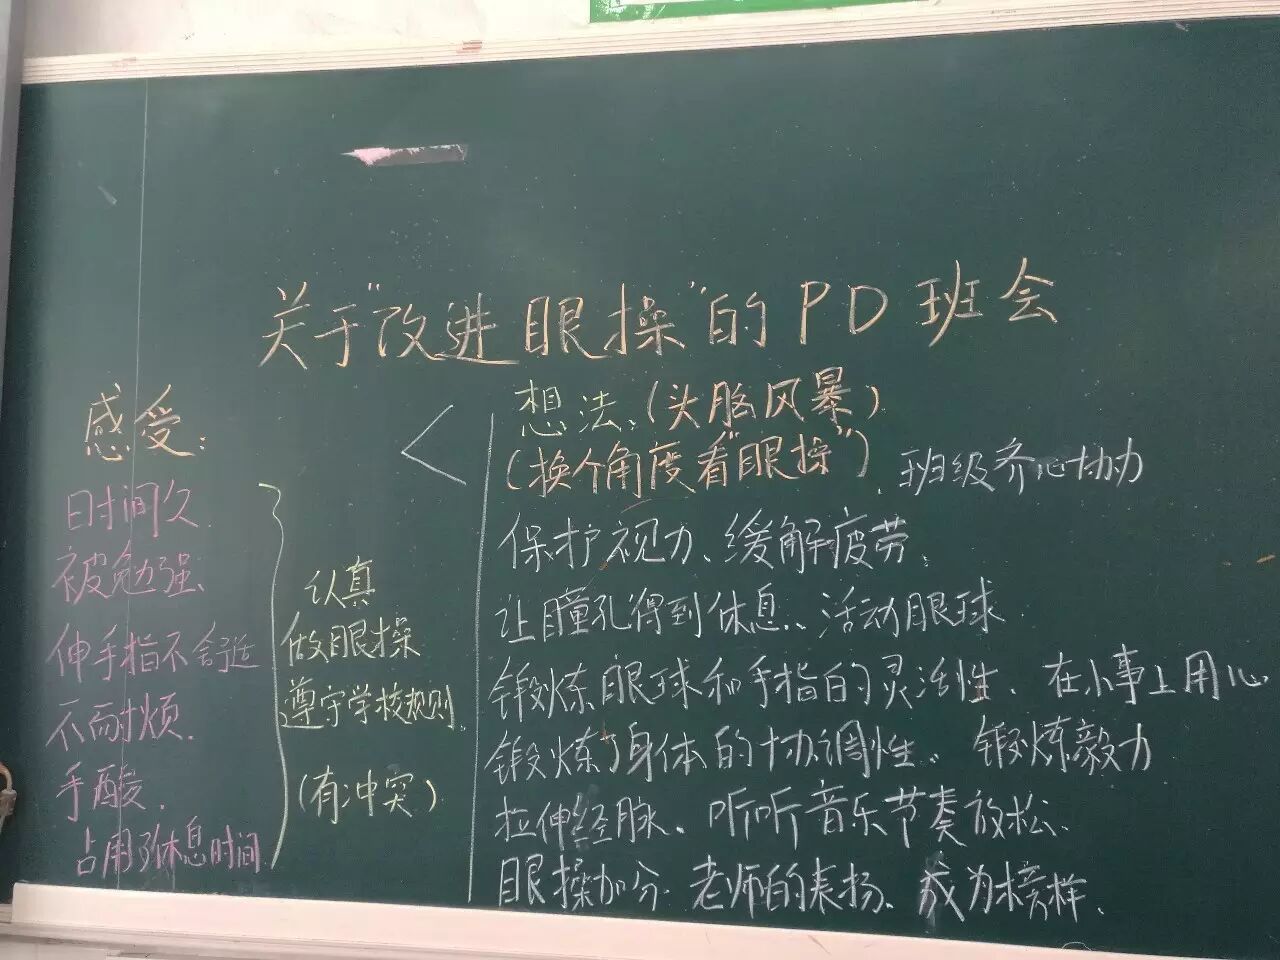 关于"改进眼操"的PD班会
感受:
日时间久
被勉强、
伸手指不舒适
不耐烦.
手酸.
占用了休息时间
认真
做眼操
遵守学校规则
(有冲突)
想法:(头脑风暴)
(换个角度看"眼操") 班级齐心协力
保护视力、缓解疲劳.
让瞳孔得到休息、活动眼球
锻炼眼球和手指的灵活性. 在小事上用心
锻炼了身体的协调性. 锻炼毅力
拉伸经脉. 听听音乐节奏放松.
眼操加分. 老师的表扬. 成为榜样.